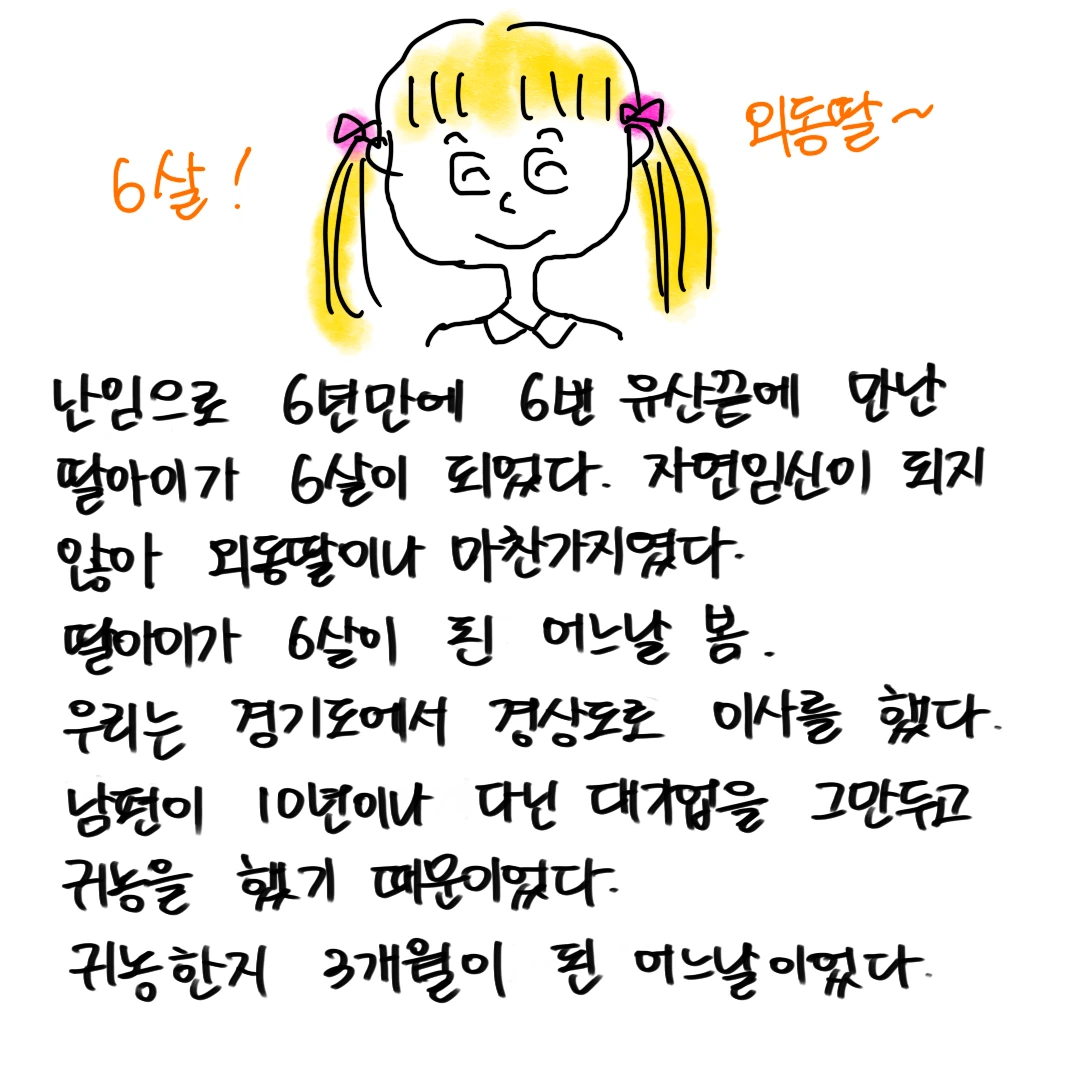 외동딸~
6살!
난임으로 6년만에 6번 유산끝에 만난
딸아이가 6살이 되었다. 자연임신이 되지
않아 외동딸이나 마찬가지였다.
딸아이가 6살이 된 어느날 봄.
우리는 경기도에서 경상도로 이사를 했다.
남편이 10년이나 다닌 대기업을 그만두고
귀농을 했기 때문이었다.
귀농한지 3개월이 된 어느날이었다.